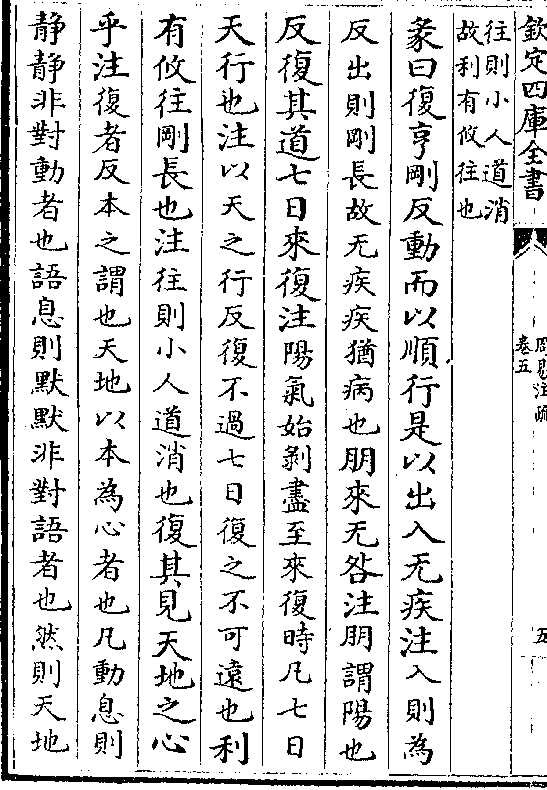 欽定四庫全書
周易注疏
卷五
五
往則小人道消
故利有攸往也
彖曰復亨剛反動而以順行是以出入无疾注入則為
反出則剛長故无疾疾猶病也朋來无咎注朋謂陽也
反復其道七日來復注陽氣始剝盡至來復時凡七日
天行也注以天之行反復不過七日復之不可遠也利
有攸往剛長也注往則小人道消也復其見天地之心
乎注復者反本之謂也天地以本為心者也凡動息則
静静非對動者也語息則默默非對語者也然則天地